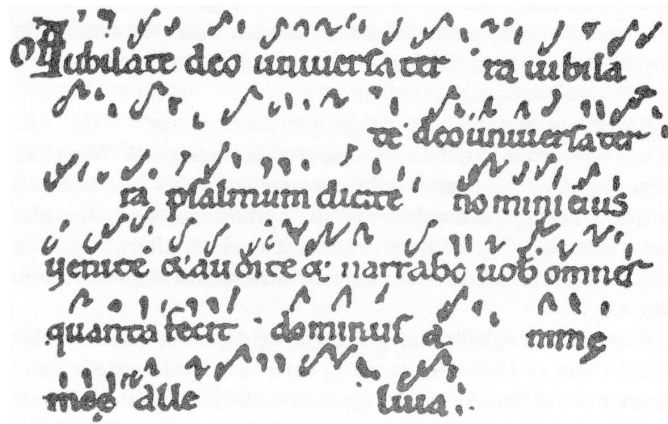 Iubilate deo uniuersa ter ra iubila
te deo uniuersa ter
ra psalmum dicite nomini eius
uenite & audite & narrabo uob omnia
quanta fecit dominus a nime
meę alle luia.